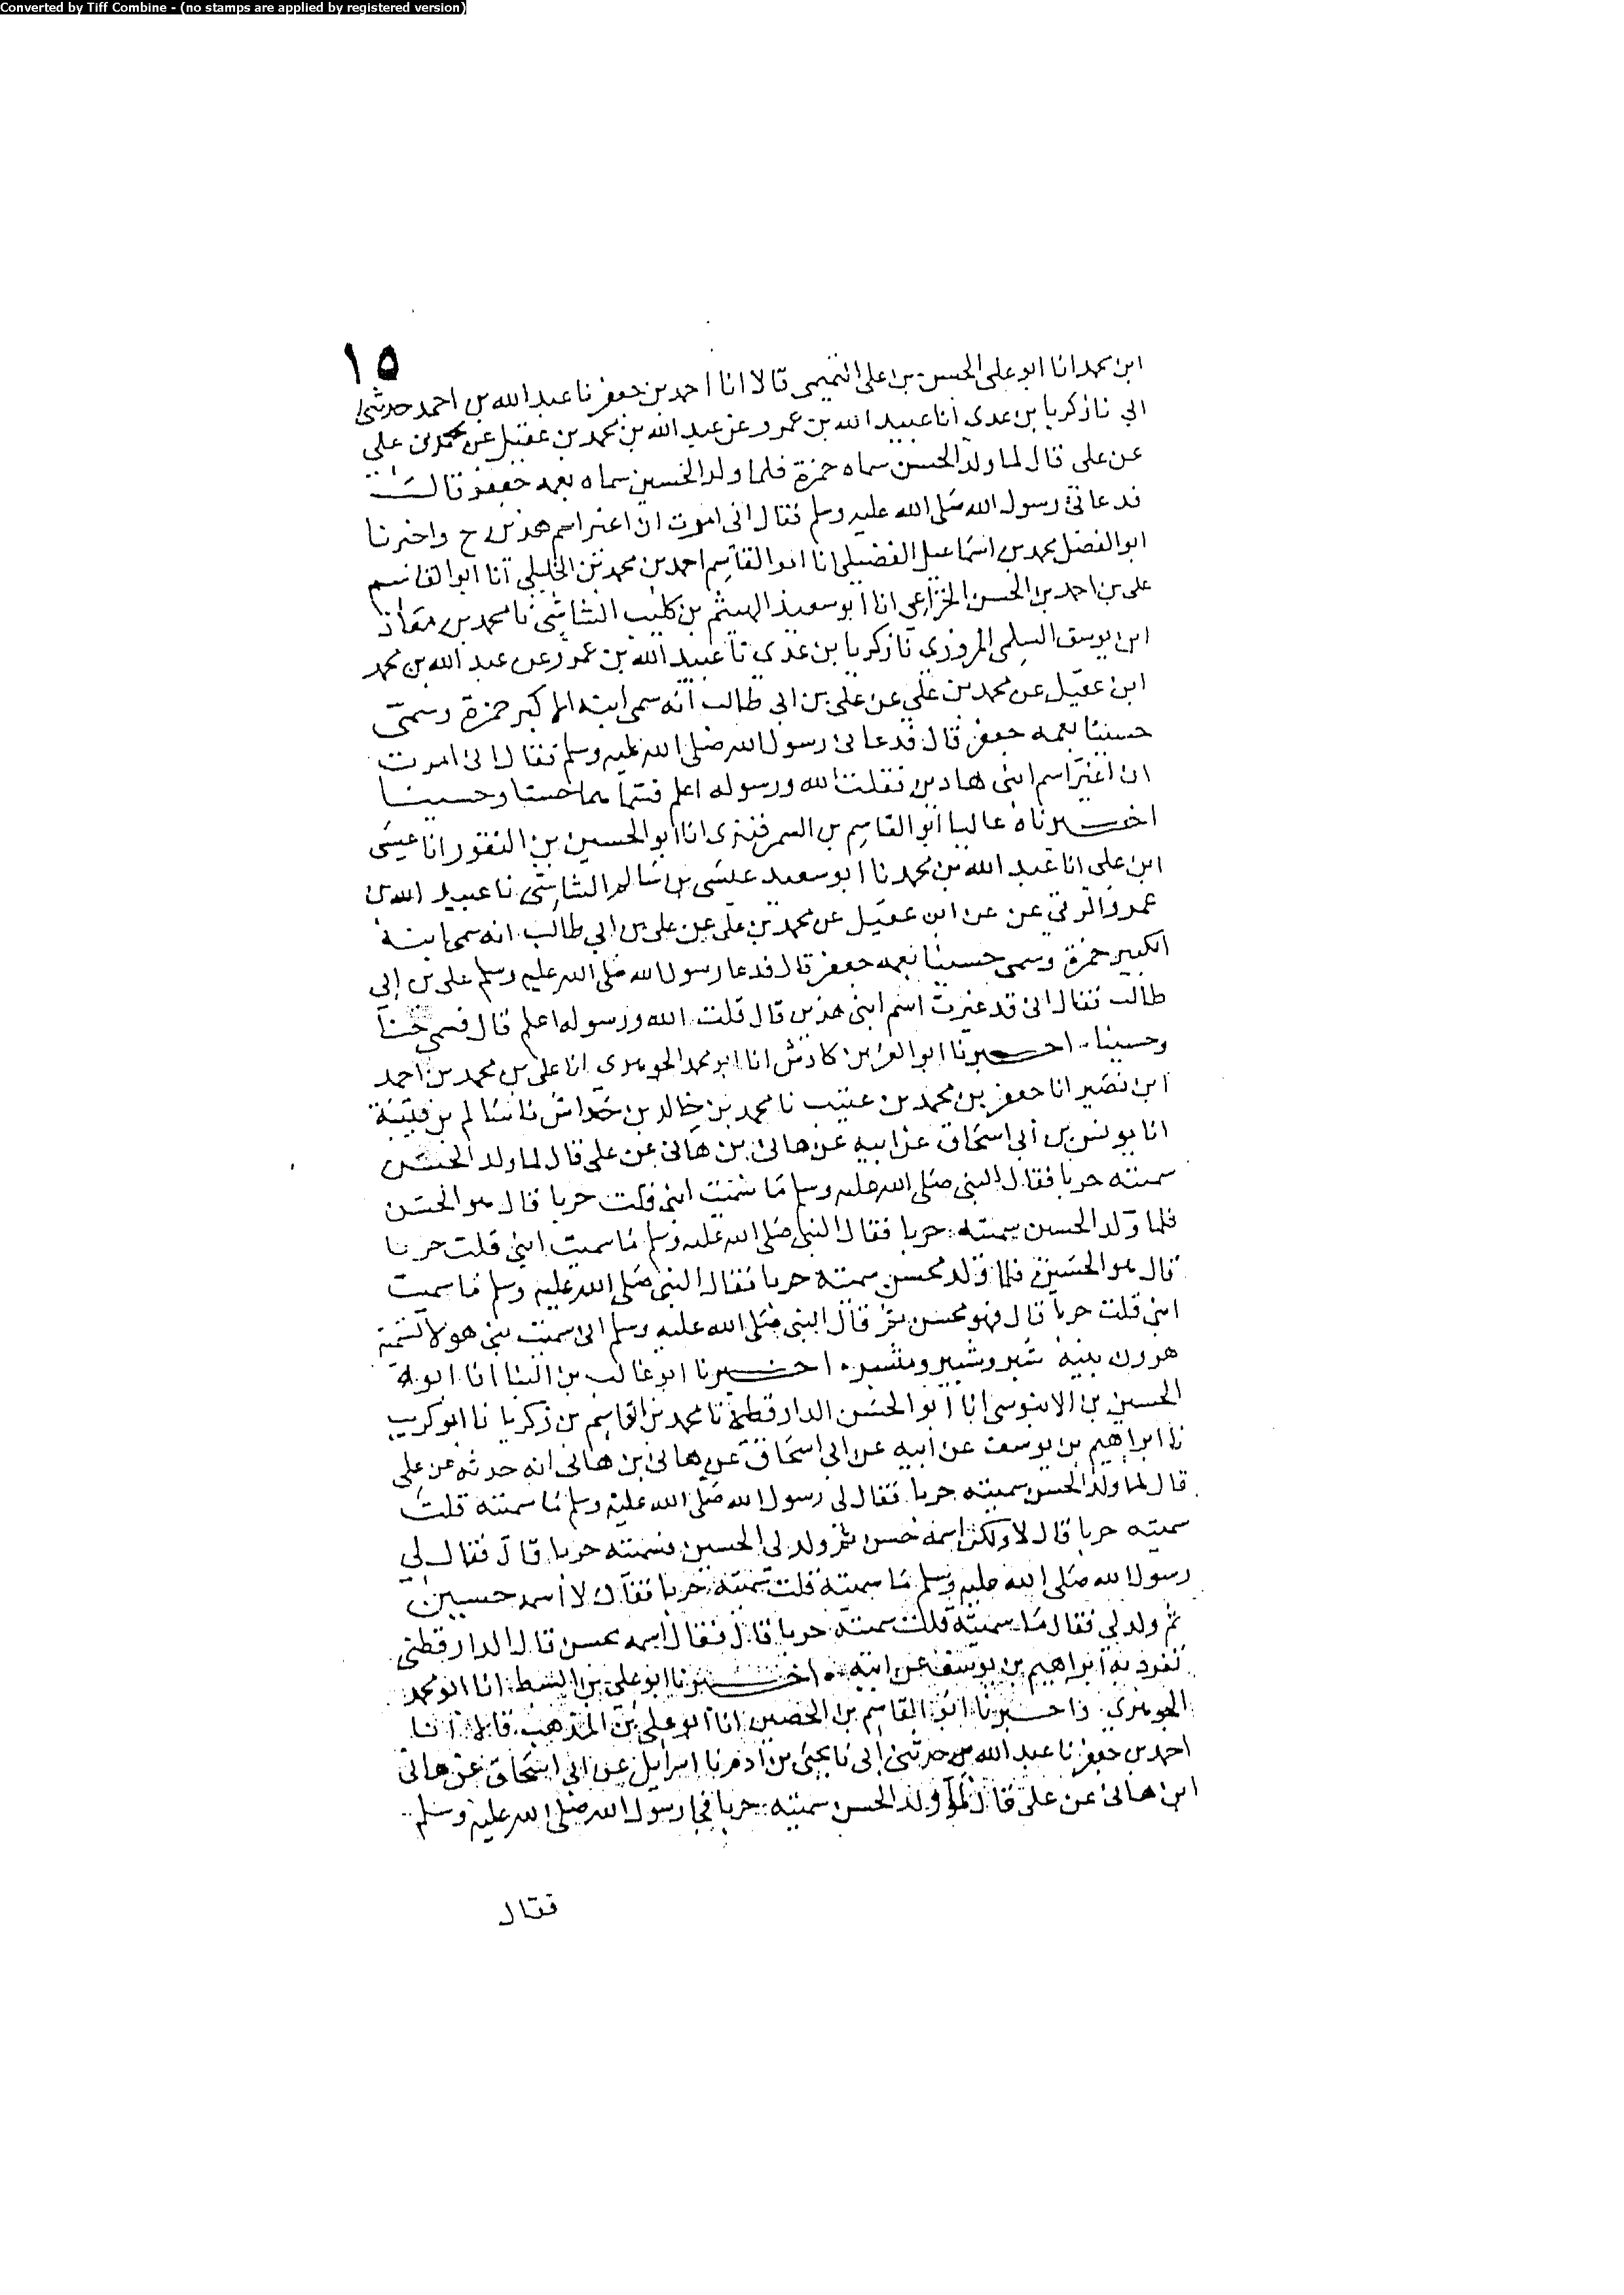 Converted by Tiff Combine - (no stamps are applied by registered version)
١٥
ابن محمد انا ابو على الحسن بن على التميمى قالا انا احمد بن جعفر نا عبد الله بن احمد حدثنى
ابي نا زكريا بن عدى انا عبيد الله بن عمرو عن عبد الله بن محمد بن عقيل عن محمد بن على
عن على قال لما ولد الحسن سماه حمزة فلما ولد الحسين سماه بعمه جعفر قالت
فدعانى رسول الله صلى الله عليه وسلم فقال انى امرت ان اغير اسم هذين ح واخبرنا
ابو الفضل محمد بن اسماعيل الفضيلى انا ابو القاسم احمد بن محمد بن الخليلي انا ابو القاسم
على بن احمد بن الحسن الخزاعى انا ابو سعيد الهيثم بن كليب الشاشى نا محمد بن معاذ
ابن يوسف السلمى المروزى نا زكريا بن عدى نا عبيد الله بن عمرو عن عبد الله بن محمد
ابن عقيل عن محمد بن علي عن على بن ابى طالب انه سمى ابنه الاكبر حمزة وسمى
حسينا بعمه جعفر قال فدعانى رسول الله صلى الله عليه وسلم فقال انى امرت
ان اغير اسم ابنى هاذين فقلت الله ورسوله اعلم فسماهما حسنا وحسينا
اخبرناه عاليا ابو القاسم بن السمرقندى انا ابو الحسين بن النقور انا عيسى
ابن على انا عبد الله بن محمد نا ابو سعيد عيسى بن سالم الشاشى نا عبيد الله بن
عمرو الرقي عن عن ابن عقيل عن محمد بن على عن على بن ابي طالب انه سمى ابنه
الكبير حمزة وسمى حسينا بعمه جعفر قال فدعا رسول الله صلى الله عليه وسلم على بن ابى
طالب فقال انى قد غيرت اسم ابنى هذين قال قلت الله ورسوله اعلم قال فسمى حسنا
وحسينا اخبرنا ابو العز بن كادش انا ابو محمد الجوهرى انا على بن محمد بن احمد
ابن نصير انا جعفر بن محمد بن عتيب نا محمد بن خالد بن خداش نا سالم بن قتيبة
انا يونس بن أبى اسحاق عن ابيه عن هانى بن هانى عن على قال لما ولد الحسن
سميته حربا فقال النبى صلى الله عليه وسلم ما سميت ابنى قلت حربا قال هو الحسن
فلما ولد الحسين سميته حربا فقال النبى صلى الله عليه وسلم ما سميت ابنى قلت حربا
قال هو الحسين فلما ولد محسن سميته حربا فقال النبى صلى الله عليه وسلم ما سميت
ابنى قلت حربا قال فهو محسن ثم قال النبى صلى الله عليه وسلم انى سميت بنى هولا تسمية
هرون بنيه شبر وشبير ومشبر اخبرنا ابو غالب بن البنا انا ابو
الحسين بن الابنوسى انا ابو الحسن الدارقطنى نا محمد بن القاسم بن زكريا نا ابو كريب
نا ابراهيم بن يوسف عن ابيه عن ابى اسحاق عن هانى بن هانى انه حدثه عن على
قال لما ولد الحسن سميته حربا فقال لى رسول الله صلى الله عليه وسلم ما سميته قلت
سميته حربا قال لا ولكن اسمه حسن ثم ولد لى الحسين فسميته حربا قال فقال لي
رسول الله صلى الله عليه وسلم ما سميته قلت سميته حربا فقال لا اسمه حسين
ثم ولد لي فقال ما سميته قلت سميته حربا قال فقال اسمه محسن قال الدارقطنى
تفرد به ابراهيم بن يوسف عن ابيه اخبرنا ابو على بن السبط انا ابو محمد
الجوهرى واخبرنا ابو القاسم بن الحصين انا ابو على بن المذهب قالا انا
احمد بن جعفر نا عبد الله بن حدثنى ابى نا يحيى بن ادم نا اسرايل عن ابى اسحاق عن هانى
ابن هانى عن على قال لما ولد الحسن سميته حربا فجا رسول الله صلى الله عليه وسلم
فقال